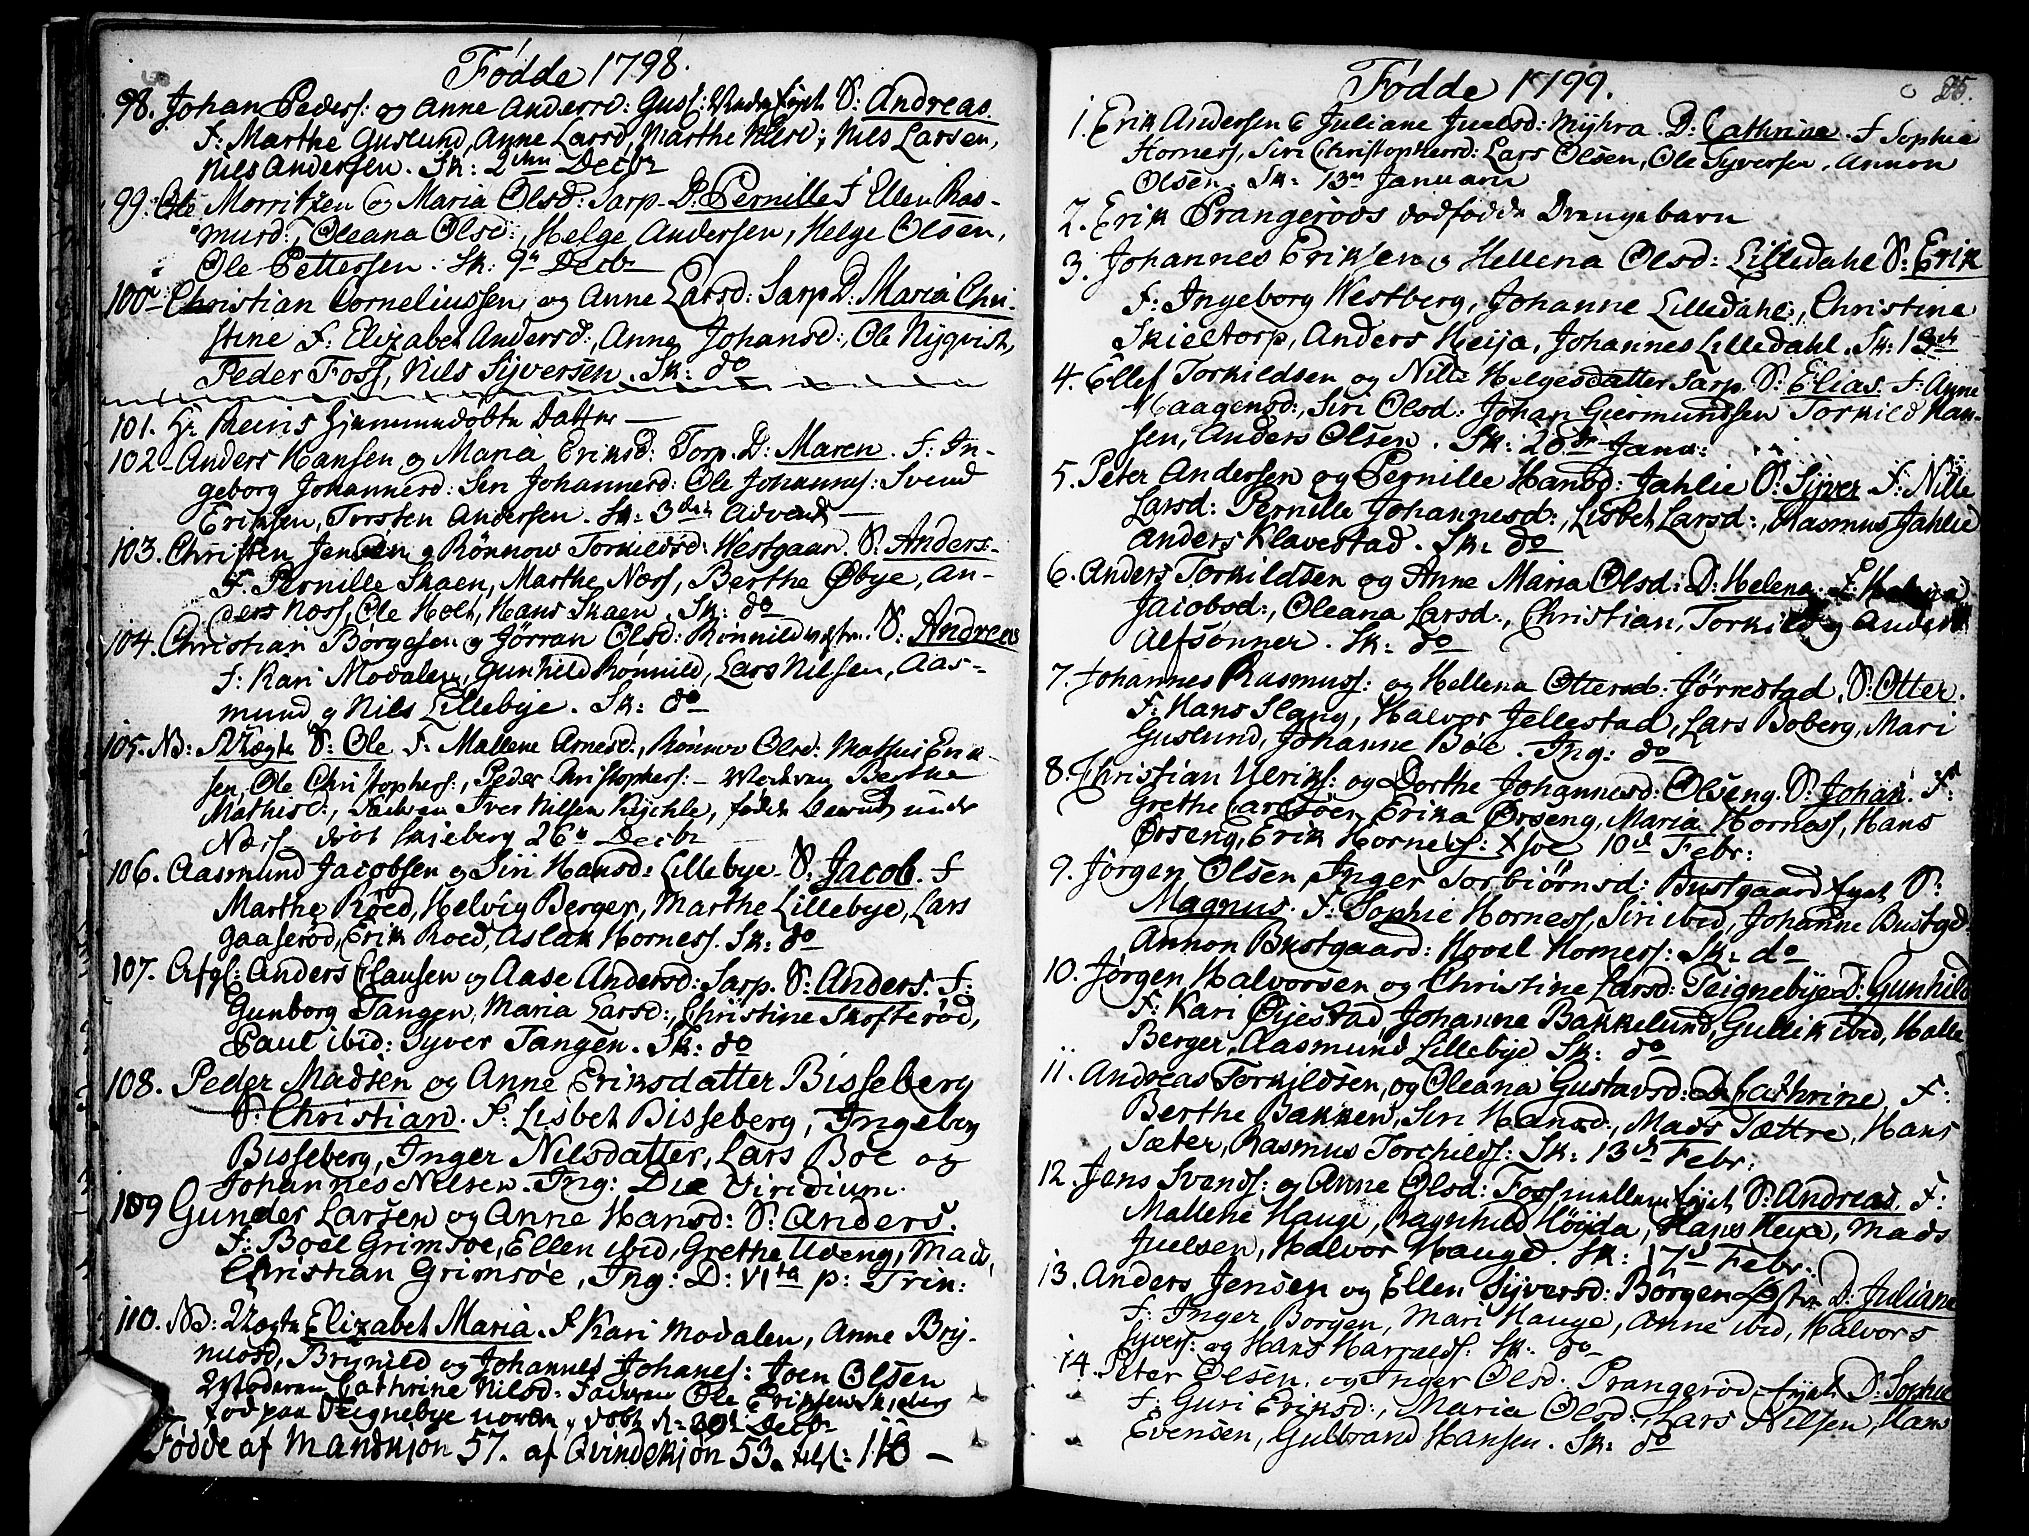 Fødde 1798.
98. Johan Peders: og Anne Anderrd: Gusl: S: Andreas.
F: Marthe Guslund, Anne Larsd, Marthe Nilsd; Nils Larsen,
Nils Andersen. Sk: 2den Decbr
99. Ole Morritzen og Maria Olsd: Sarp. D. Pernille F Ellen Ras-
musd:, Oleana Olsd:, Helge Andersen, Helge Olsen,
Ole Pettersen. Sk: 9n Decbr
100. Christian Corneliussen og Anne Larsd: Sarp D: Maria Chri-
stine F: Elizabet Andersd:, Anne Johansd:, Ole Nyqvist,
Peder Foss, Nils Syversen. Sk: do
101. Hr Reins Hjemmedøbte Datter
102. Anders Hansen og Maria Eriksd: Torp. D: Maren. F: In-
geborg Johannesd: Siri Johannesd: Ole Johanness: Svend
Eriksen, Torsten Andersen. Sk: 3die Advent
103. Christen Jensen og Rönnow Torkildsd: Westgaar. S: Anders.
F. Pernille Skaen, Marthe Næss, Berthe Øbye, An-
ders Næss, Ole Holt, Hans Skaen. Sk: do
104. Christian Borgesen og Jörran Olsd: Rönnild S: Andreas
F: Kari Modalen, Gunhild Rönnild, Lars Nilsen, Aas-
mund og Nils Lillebye. Sk: do
105. NB: Uægte S: Ole F: Mallene Arnesd:, Rönnov Olsd: Mathis Erik-
sen, Ole Christophers:, Peder Christophers: Moderen Berthe
Mathisd:, Faderen Iver Nilsen fødde Barnet under
Næss. døbt Skieberg 26n Decbr
106. Aasmund Jacobsen og Siri Hansd: Lillebye. S: Jacob. F
Marthe Röed, Helvig Berger, Marthe Lillebye, Lars
Gaaserød, Erik Roed, Aslak Horness. Sk: do
107. Afgl: Anders Clausen og Aase Andersd: Sarp. S: Anders. F:
Gunborg Tangen, Maria Larsd:, Christine Skofterød,
Paul ibid: Syver Tangen. Sk: do
108. Peder Madsen og Anne Eriksdatter Bisseberg
S: Christian. F: Lisbet Bisseberg, Ingeborg
Bisseberg, Inger Nilsdatter, Lars Boe og
Johannes Nelsen. Ing: Die Viridium.
109 Gunder Larsen og Anne Hansd: S: Anders.
F: Boel Grimsöe, Ellen ibid, Grethe Udeng, Mads,
Christian Grimsöe, Ing: D: VIta p: Trin:
110. NB: Uægte Elizabet Maria. F Kari Modalen, Anne Bry-
nildsd, Brynild og Johannes Johanes: Joen Olsen
Moderen Cathrine Nilsd: Faderen Ole Eriksen Skieberg
fød paa Teignebye døbt d: Decbr
Fødde af Mandkjøn 57. af Qvindekjøn 53. tils: 110
Fødde 1799.
25.
1. Erik Andersen & Juliane Juelsd: Myhra. D: Cathrine. F Sophie
Horness, Siri Christophersd: Lars Olsen, Ole Syversen, Annon
Olsen. Sk: 13n Januarii
2. Erik Prangerøds dødfødde Drengebarn
3. Johannes Eriksen og Hellena Olsd: Lilledahl S: Erik
F: Ingeborg Westberg, Johanne Lilledahl, Christine
Skieltorp, Anders Heija, Johannes Lilledahl. Sk: 13de
4. Ellef Torkildsen og Nille Helgesdatter Sarp. S: Elias. F: Anne
Haagensd:, Siri Olsd: Johan Giermundsen Torkild Han-
sen, Anders Olsen. Sk: 20de Janu:
5. Peter Andersen og Pernille Hansd: Jahlie S: Syver F: Nille
Larsd: Pernille Johannesd:, Lisbet Larsd:, Rasmus Jahlie
Anders Klavestad. Sk: do
6. Anders Torkildsen og Anne Maria Olsd: D: Helena. F: Helena
Jacobsd:, Oleana Larsd:, Christian, Torkild og Anders
Alfsønner. Sk: do
7. Johannes Rasmuss: og Hellena Ottersd: Jørrestad. S: Otter.
F: Hans Slang, Halvor Jellestad, Lars Boberg, Mari
Guslund, Johanne Böe. Ing: do
8. Christian Ulriks: og Dorthe Johannesd: Olseng. S: Johan. F:
Grethe Carlsöen, Erika Ørseng, Maria Horness, Hans
Ørseng, Erik Horness: 10d Febr:
9. Jørgen Olsen, Inger Torbiørnsd: Bustgaard S:
Magnus. F: Sophie Horness, Siri ibid, Johanne Bustgd.
Annon Bustgaard: Hovel Horness: Sk: do
10. Jørgen Halvorsen og Christine Larsd: Teignebye D: Gunhild
F: Kari Øyestad, Johanne Bakkelund, Gullik ibid, Halle
Berger, Aasmund Lillebye Sk: do
11. Andreas Torkildsen, og Oleana Gustavsd: D: Cathrine. F:
Berthe Bakken, Siri Hansd:, Mads Sættre, Hans
Sæter, Rasmus Torchilds: Sk: 13d Febr:
12. Jens Svends: og Anne Olsd: Foss S: Andreas. F:
Mallene Hauge, Ragnhild Höyda, Hans Heye, Mads
Juelsen, Halvor Hauge. Sk: 17d Febr:
13. Anders Jensen og Ellen Syversd: Borgen D: Juliane
F: Inger Borgen, Mari Hauge, Anne ibid, Halvors
Syvers: og Hans Harralds: Sk: do
14. Peter Olsen, og Inger Olsd: Prangerød D: Sophie
F: Guri Eriksd:, Maria Olsd:, Lars Nilsen, Hans
Evensen, Gulbrand Hansen. Sk: do